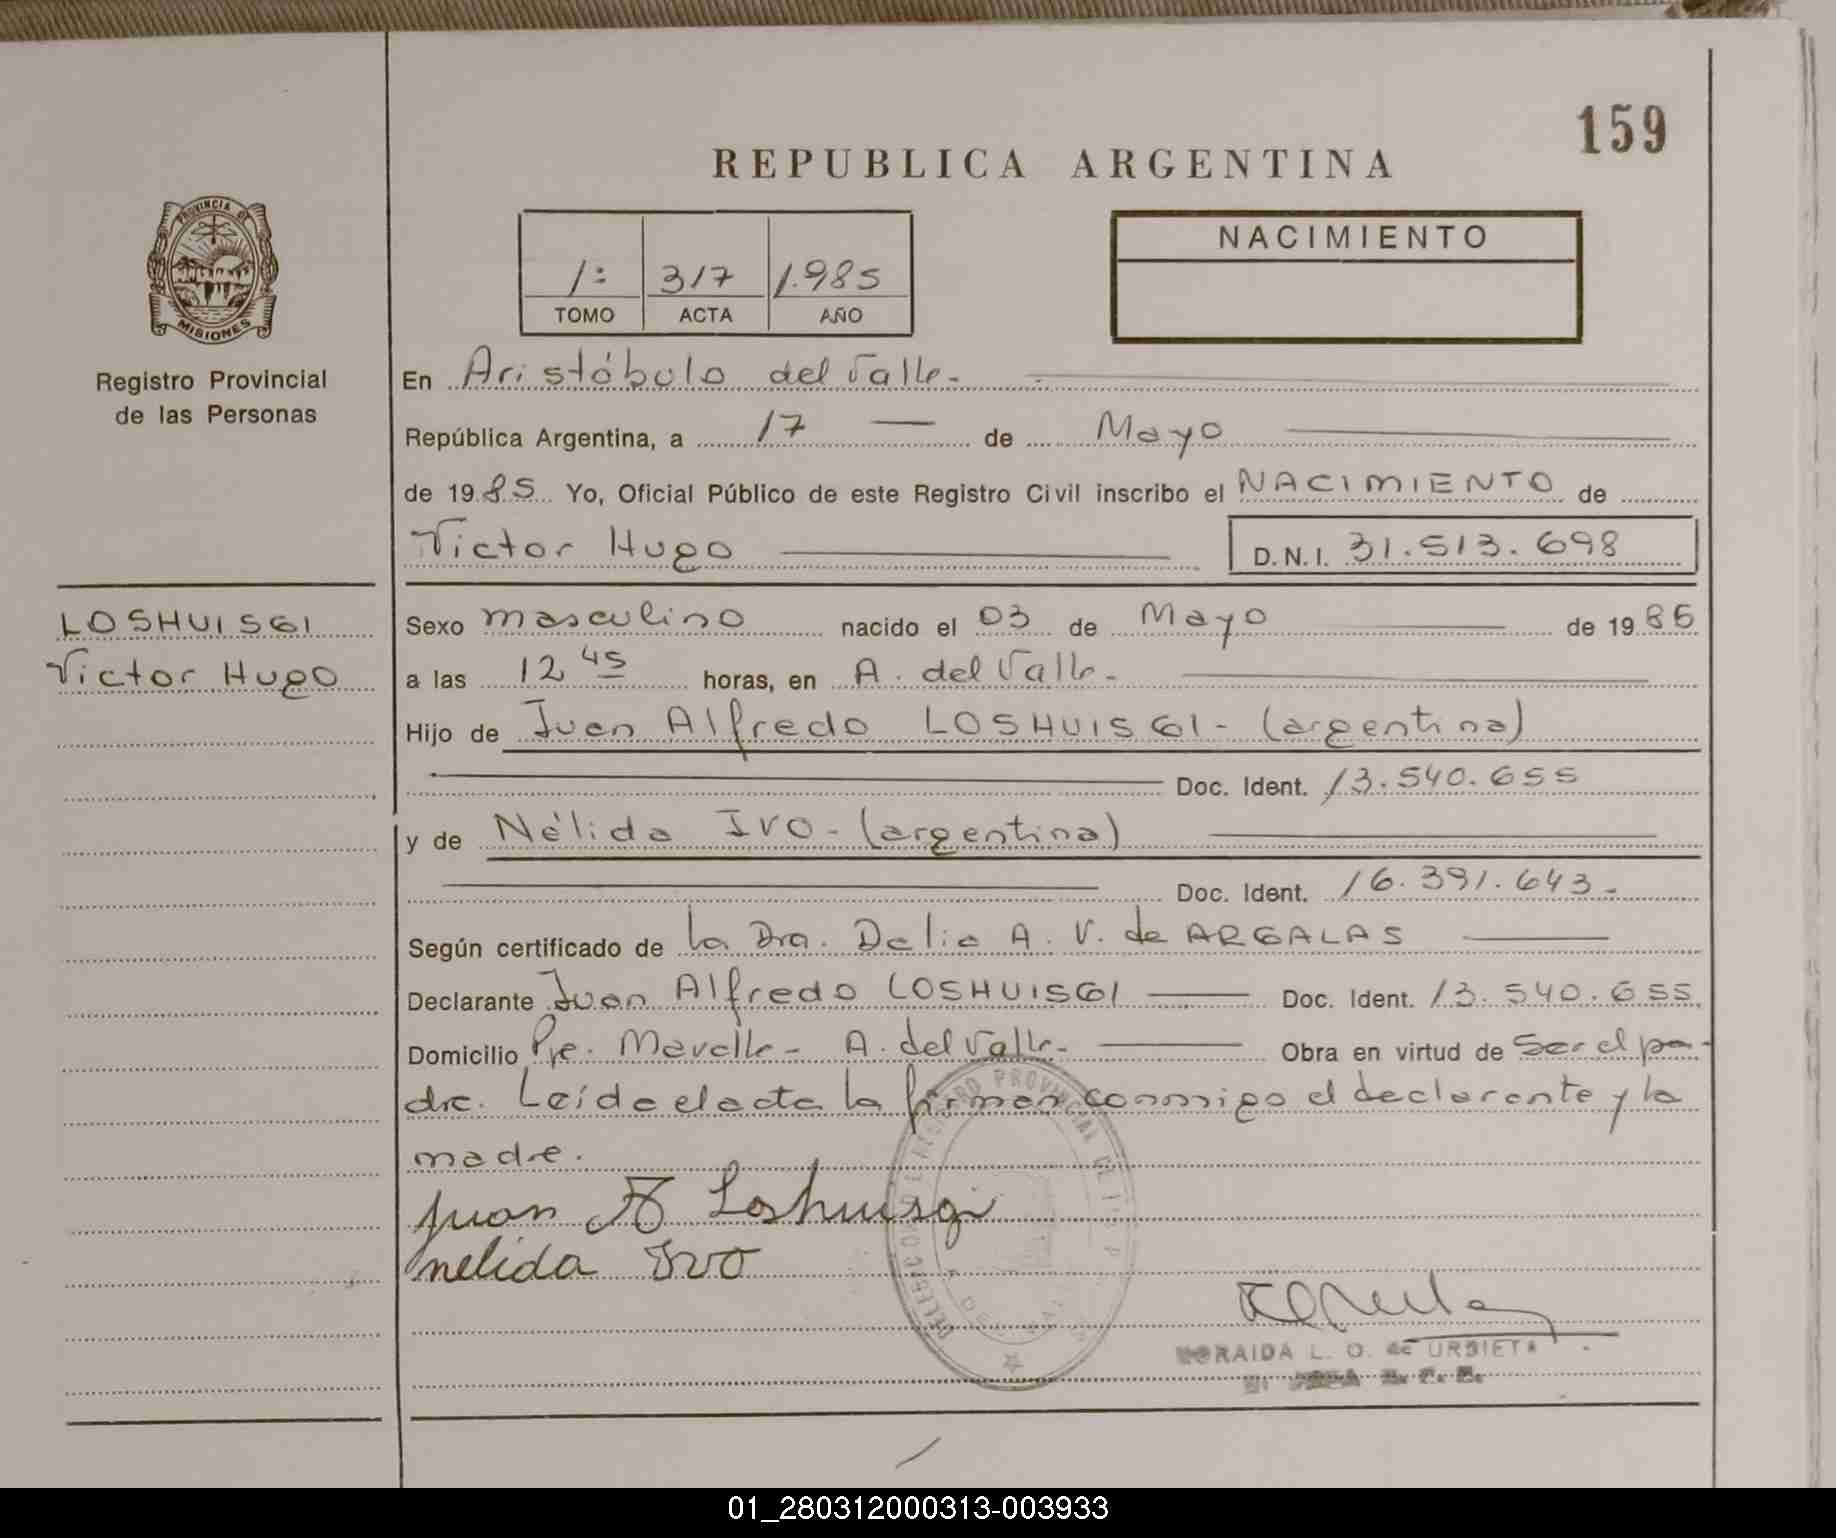 159
REPUBLICA ARGENTINA
PROVINCIA DE
MISIONES
Registro Provincial
de las Personas
1:
317
1.985
TOMO
ACTA
AÑO
NACIMIENTO
En Aristóbulo del Valle.
República Argentina, a 17 de Mayo
de 1985 Yo, Oficial Público de este Registro Civil inscribo el NACIMIENTO de
Victor Hugo
D.N.I. 31.513.698
LOSHUISGI
Victor Hugo
Sexo masculino nacido el 03 de Mayo de 1985
a las 12 45 horas, en A. del Valle.
Hijo de Juan Alfredo LOSHUISGI - (argentina)
Doc. Ident. 13.540.655
y de Nélida IVO - (argentina)
Doc. Ident. 16.391.643.
Según certificado de la Dra. Delia A. V. de ARGALAS
Declarante Juan Alfredo LOSHUISGI Doc. Ident. 13.540.655
Domicilio A. del Valle Obra en virtud de Ser el pa-
dre. Leída el acta la firman conmigo el declarante y la
madre.
Juan A Loshuisgi
nelida Ivo
REGISTRO PROVINCIAL DE
L. O. de URBIETA
01_280312000313-003933